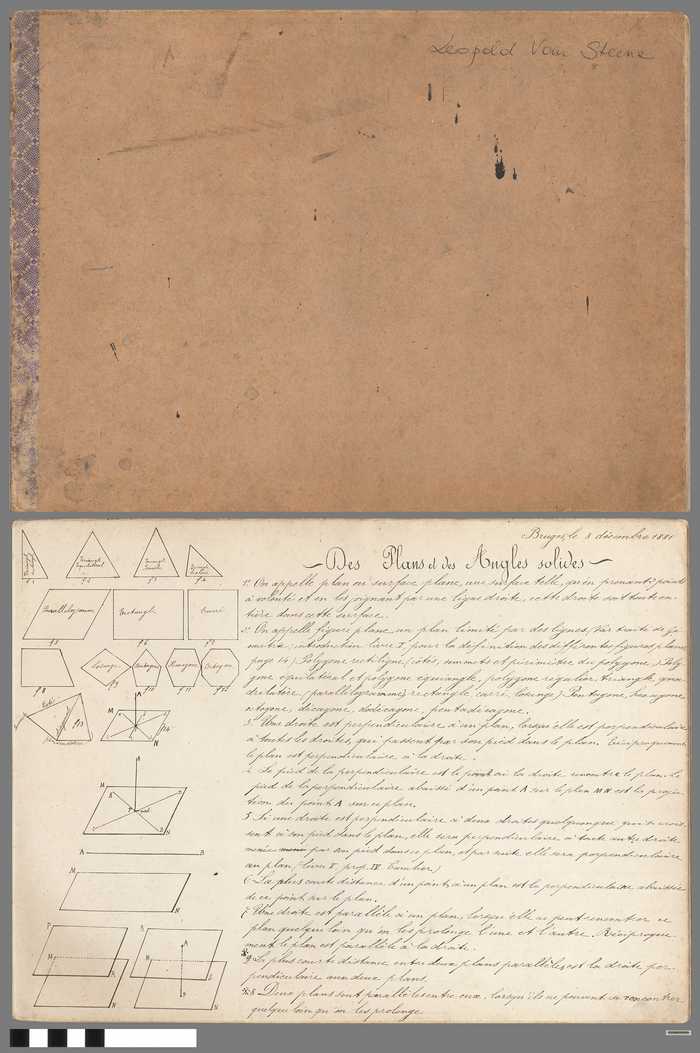 Leopold Van Steene
Bruges, le 8 décembre 1881
Des Plans et des Angles solides
1° On appelle plan ou surface plane, une surface telle, qu'en prenant 2 points
à volonté et en les joignant par une ligne droite, cette droite soit toute en-
tière dans cette surface.
2° On appelle figure plane un plan limité par des lignes, (Voir traité de Géo
métrie; introduction livre I pour la définition des différentes figures planes
page 14) Polygone rectiligne (côtés, sommets et périmètre du polygone) Poly
gone équilatéral et polygone équiangle, polygone régulier, triangle, qua
drilatère, (parallélogramme, rectangle, carré, losange) Pentagone, hexagone
octogone, décagone, dodécagone, pentadécagone.
3° Une droite est perpendiculaire à un plan, lorsqu'elle est perpendiculaire
à toutes les droites, qui passent par son pied dans le plan. Réciproquement
le plan est perpendiculaire à la droite.
4. Le pied de la perpendiculaire est le point où la droite rencontre le plan. Le
pied de la perpendiculaire abaissée d'un point A sur le plan MN est la projec
tion du point A sur ce plan.
5. Si une droite est perpendiculaire à deux droites quelconques qui se croi
sent à son pied dans le plan, elle sera perpendiculaire à toute autre droite
menée par son pied dans ce plan, et par suite elle sera perpendiculaire
au plan (livre V prop. IV
6 La plus courte distance d'un point à un plan est la perpendiculaire abaissée
de ce point sur le plan.
7 Une droite est parallèle à un plan, lorsqu'elle ne peut rencontrer ce
plan quelque loin qu'on les prolonge l'une et l'autre. Réciproque
ment le plan est parallèle à la droite.
9 La plus courte distance entre deux plans parallèles est la droite per-
pendiculaire aux deux plans.
8 Deux plans sont parallèles entre eux, lorsqu'ils ne peuvent se rencontrer
quelque loin qu'on les prolonge
Triangle
f 1
Triangle
équilatéral
f 2
Triangle
isocèle
f 3
Triangle
f 4
Parallélogramme
f 5
Rectangle
f 6
Carré
f 7
f 8
Losange
f 9
Pentagone
f 10
Hexagone
f 11
Octogone
f 12
f 13
A
M
N
f 14
A
M
P
N
A B
M
N
P
M
N
S
A
B
M
N